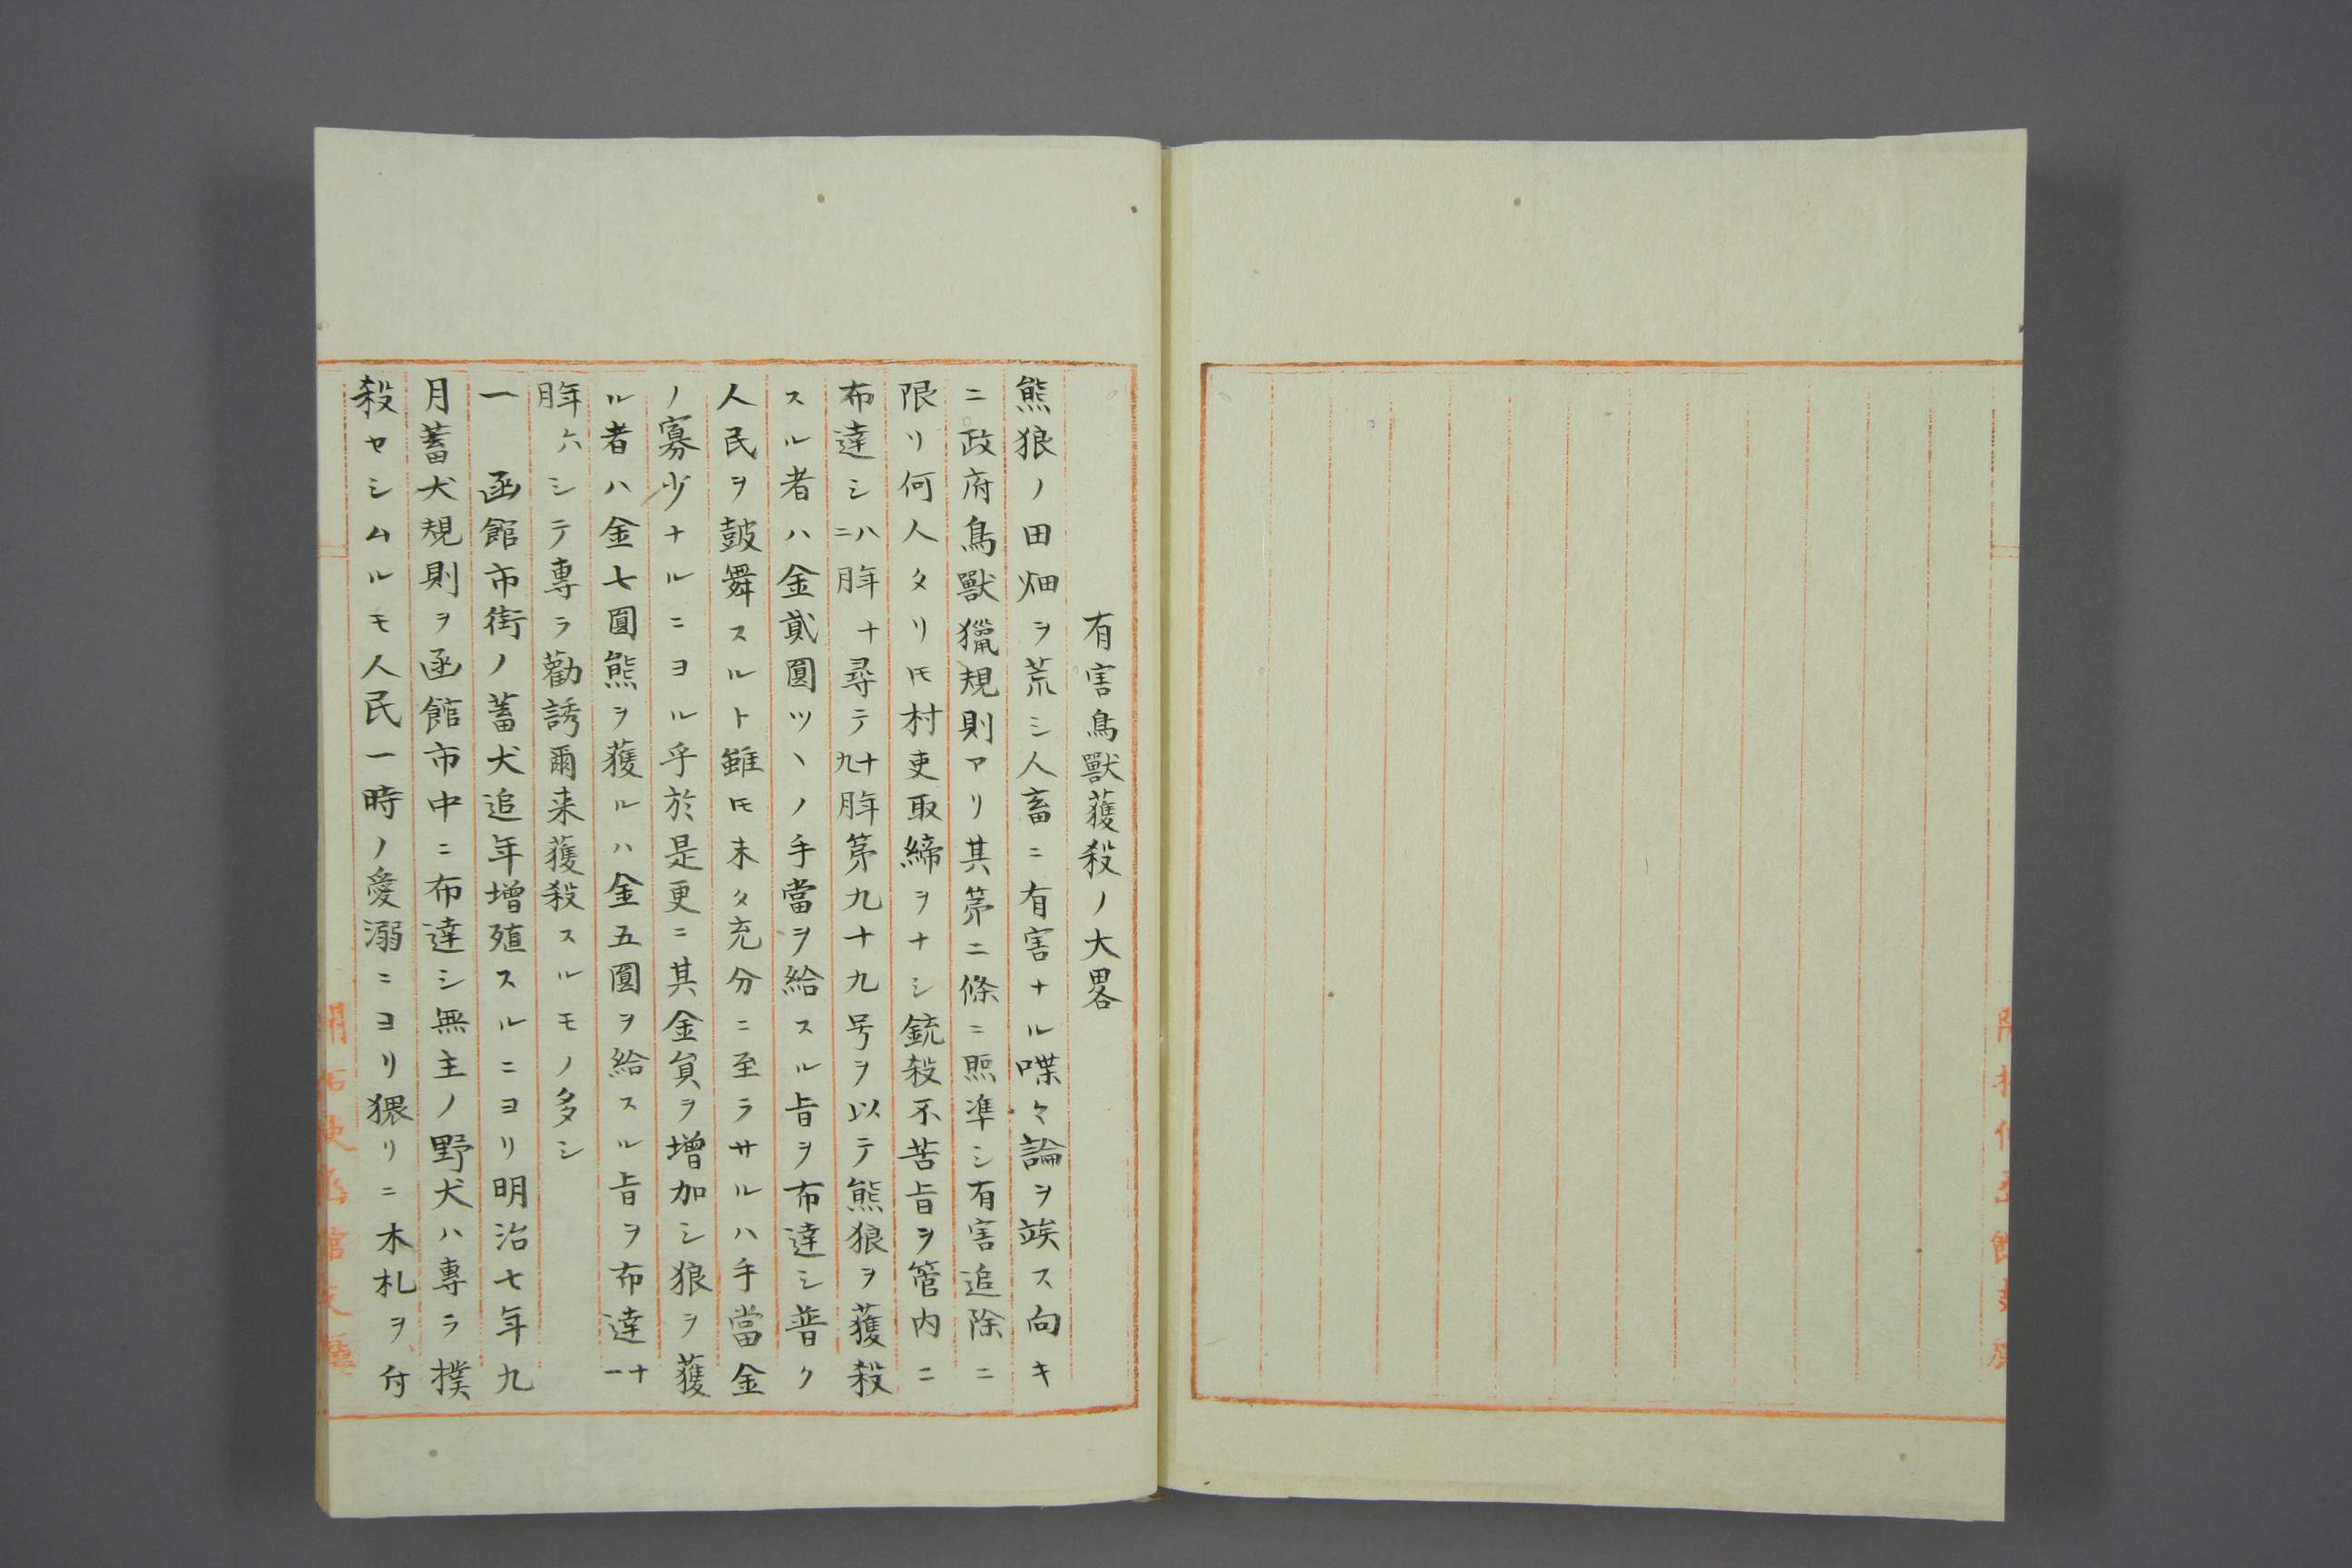 有害鳥獸獲殺ノ大畧
熊狼ノ田畑ヲ荒シ人畜ニ有害ナル喋々論ヲ竢ス向キ
ニ政府鳥獸獵規則アリ其第二條ニ照準シ有害追除ニ
限リ何人タリ𪜈村吏取締ヲナシ銃殺不苦旨ヲ管内ニ
布達シ八年十二月尋テ十年九月第九十九号ヲ以テ熊狼ヲ獲殺
スル者ハ金貳圓ツヽノ手當ヲ給スル旨ヲ布達シ普ク
人民ヲ鼓舞スルト雖𪜈未タ充分ニ至ラサルハ手當金
ノ寡少ナルニヨル乎於是更ニ其金員ヲ增加シ狼ヲ獲
ル者ハ金七圓熊ヲ獲ルハ金五圓ヲ給スル旨ヲ布達十一
年月シテ專ラ勸誘爾来獲殺スルモノ多シ
一　函館市街ノ蓄犬追年增殖スルニヨリ明治七年九
月蓄犬規則ヲ函館市中ニ布達シ無主ノ野犬ハ專ラ撲
殺セシムルモ人民一時ノ愛溺ニヨリ猥リニ木札ヲ付
開拓使函館支廳